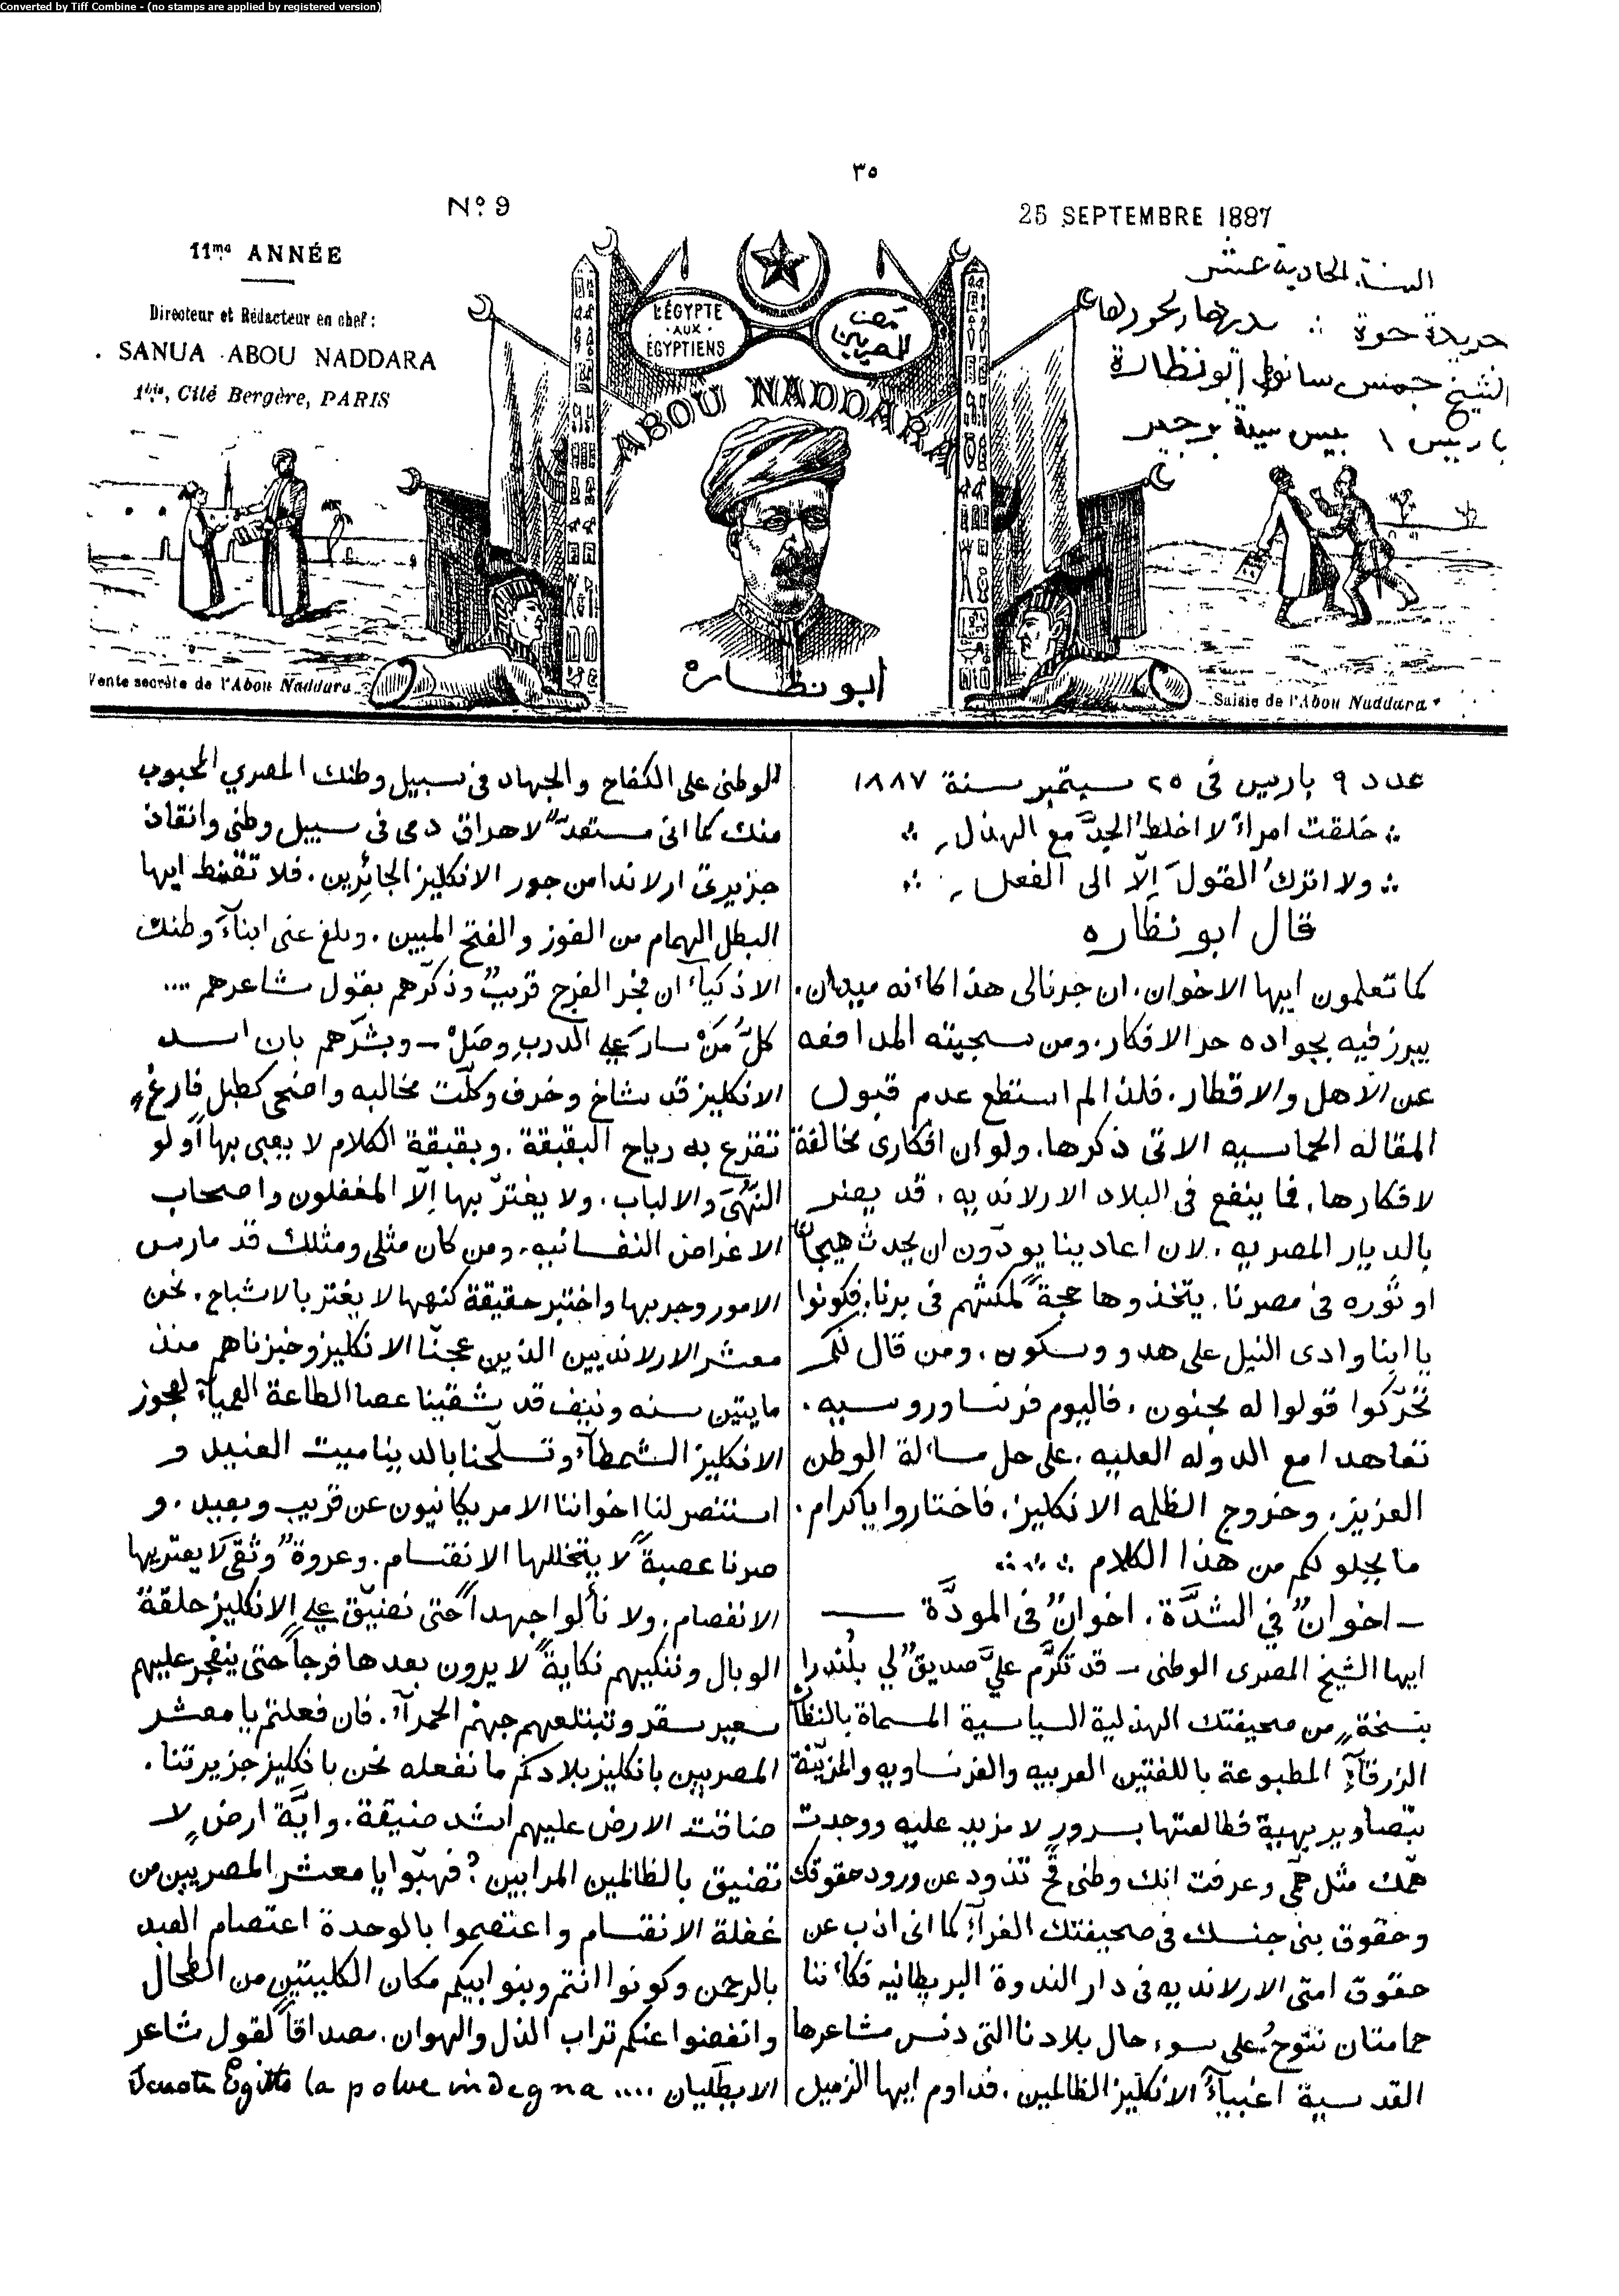 Converted by Tiff Combine - (no stamps are applied by registered version)
٣٥
Nº 9
25 SEPTEMBRE 1887
11me ANNÉE
Directeur et Rédacteur en chef :
SANUA ABOU NADDARA
1bis, Cité Bergère, PARIS
السنة الحادية عشر
جريدة حرة ∴ مديرها ومحررها
الشيخ جمس سانوا ابو نظارة
باريس ١ بيس سيتة برجير
L'ÉGYPTE
AUX
ÉGYPTIENS
مصر
للمصريين
ABOU NADDARA
ابو نظاره
Vente secrète de l'Abou Naddara
Saisie de l'Abou Naddara
عدد ٩ باريس فى ٢٥ سبتمبر سنة ١٨٨٧
∴ خلقت امراءً لا اخلط الجدَّ مع الهذل ∴
∴ ولا اترك القولَ اِلّا الى الفعل ∴
قال ابو نظاره
كما تعلمون ايها الاخوان. ان جرنالى هذا كأنه ميدان.
يبرز فيه بجواده حر الافكار. ومن سجيته المدافعه
عن الاهل والاقطار. فلذا لم استطع عدم قبول
المقاله الحماسيه الاتى ذكرها. ولو ان افكارى مخالفة
لافكارها. فما ينفع فى البلاد الارلانديه. قد يضر
بالديار المصريه. لان اعادينا يودّون ان يحدث هيجاناً
او ثوره فى مصرنا. يتخذوها حجةً لمكثهم فى برنا. فكونوا
يا ابنا وادى النيل على هدو وسكون. ومن قال لكم
تحرّكوا قولوا له مجنون. فاليوم فرنسا وروسيه.
تعاهدا مع الدوله العليه. على حل مسألة الوطن
العزيز. وخروج الظلمه الانكليز. فاختاروا يا كرام.
ما يحلو لكم من هذا الكلام ∴ ∴ ∴
ـ اخوانٌ في الشدَّة. اخوانٌ فى المودَّة ـ
ايها الشيخ المصرى الوطنى ـ قد تكرَّم عليَّ صديقٌ لي بلُندرا
بنسخةٍ من صحيفتك الهذلية السياسية المسماة بالنظارة
الزرقآءِ المطبوعة باللغتين العربيه والفرنساويه والمزيّنة
بتصاوير بهية فطالعتها بسرورٍ لا مزيد عليه ووجدت
همّك مثل همّى وعرفت انك وطنى قحّ تذود عن ورود حقوقك
وحقوق بنى جنسك فى صحيفتك الغرآءِ كما انى اذب عن
حقوق امتى الارلانديه فى دار الندوة البريطانيه فكأننا
حمامتان ننوحُ على سوء حال بلادنا التى دنس مشاعرها
القدسية اغبيآءُ الانكليز الظالمين. فداوم ايها الزميل
الوطنى على الكفاح والجهاد فى سبيل وطنك المصري المحبوب
منك كما انى مستعدٌّ لاهراق دمى فى سبيل وطنى وانقاذ
جزيرتى ارلاندا من جور الانكليز الجائرين. فلا تقنط ايها
البطل الهمام من الفوز والفتح المبين. وبلغ عنى ابنآءَ وطنك
الاذكيآءَ ان فجر الفرج قريبٌ وذكّرهم بقول شاعرهم ....
كلُّ مَنْ سار على الدربِ وصَلْ ـ وبشّرهم بان اسد
الانكليز قد شاخ وخرف وكلّت مخالبه واضحى كطبل فارغ
تفزع به رياح البقبقة. وبقبقة الكلام لا يعبى بها اولو
النُهَى والالباب. ولا يغترّ بها اِلّا المغفلون واصحاب
الاغراض النفسانيه. ومن كان مثلى ومثلك قد مارس
الامور وجربها واختبر حقيقة كنهها لا يغتر بالاشباح. نحن
معشر الارلانديين الذين عجنّا الانكليز وخبزناهم منذ
مايتين سنه ونيف قد شقينا عصا الطاعة العميآءِ لعجوز
الانكليز الشمطآءِ وتسلّحنا بالديناميت العنيد و
استنصر لنا اخواننا الامريكانيون عن قريب وبعيد. و
صرنا عصبةً لا يتخللها الانقسام. وعروةً وثقى لا يعتريها
الانفصام. ولا نألوا جهداً حتى نضيّق على الانكليز حلقة
الوبال وننكيهم نكايةً لا يرون بعدها فرجاً حتى ينفجر عليهم
سعير سقر وتبتلعهم جهنم الحمرآءُ. فان فعلتم يا معشر
المصريين بانكليز بلادكم ما نفعله نحن بانكليز جزيرتنا.
ضاقت الارض عليهم اشد ضيقة. وايَّة ارضٍ لا
تضيق بالظالمين المرابين؟ فهبّوا يا معشر المصريين من
غفلة الانقسام واعتصموا بالوحدة اعتصام العبد
بالرحمن وكونوا انتم وبنو ابيكم مكان الكليتين من الطحال
وانفضوا عنكم تراب الذل والهوان. مصداقاً لقول شاعر
الايطليان .... Scuoti Egitto la polve indegna